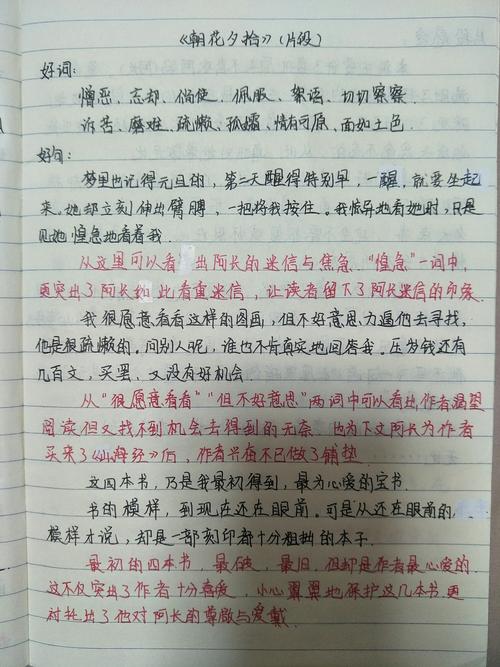 《朝花夕拾》(片段)
好词:
憎恶、忘却、倘使、佩服、絮语、切切察察.
诉苦、磨难、疏懒、孤孀、情有可原、面如土色.
好句:
梦里也记得元旦的,第二天醒得特别早,一醒,就要坐起
来.她却立刻伸出臂膊,一把将我按住.我惊异地看她时,只是
见她惶急地看着我.
从这里可以看出阿长的迷信与焦急."惶急"一词中,
更突出了阿长如此看重迷信,让读者留下了阿长迷信的印象.
我很愿意看看这样的图画,但不好意思力逼他去寻找,
他是很疏懒的.问别人呢,谁也不肯真实地回答我.压岁钱还有
几百文,买罢,又没有好机会.
从"很愿意看看""但不好意思"两词中可以看出作者渴望
阅读但又找不到机会去得到的无奈.也为下文阿长为作者
买来了《山海经》后,作者兴奋不已做了铺垫.
这四本书,乃是我最初得到,最为心爱的宝书.
书的模样,到现在还在眼前.可是从还在眼前的,
模样才说,却是一部刻印都十分粗拙的本子.
最初的四本书,最破,最旧,但却是作者最心爱的.
这不仅突出了作者十分喜爱,小心翼翼地保护这几本书.更
衬托出了他对阿长的尊敬与爱戴.